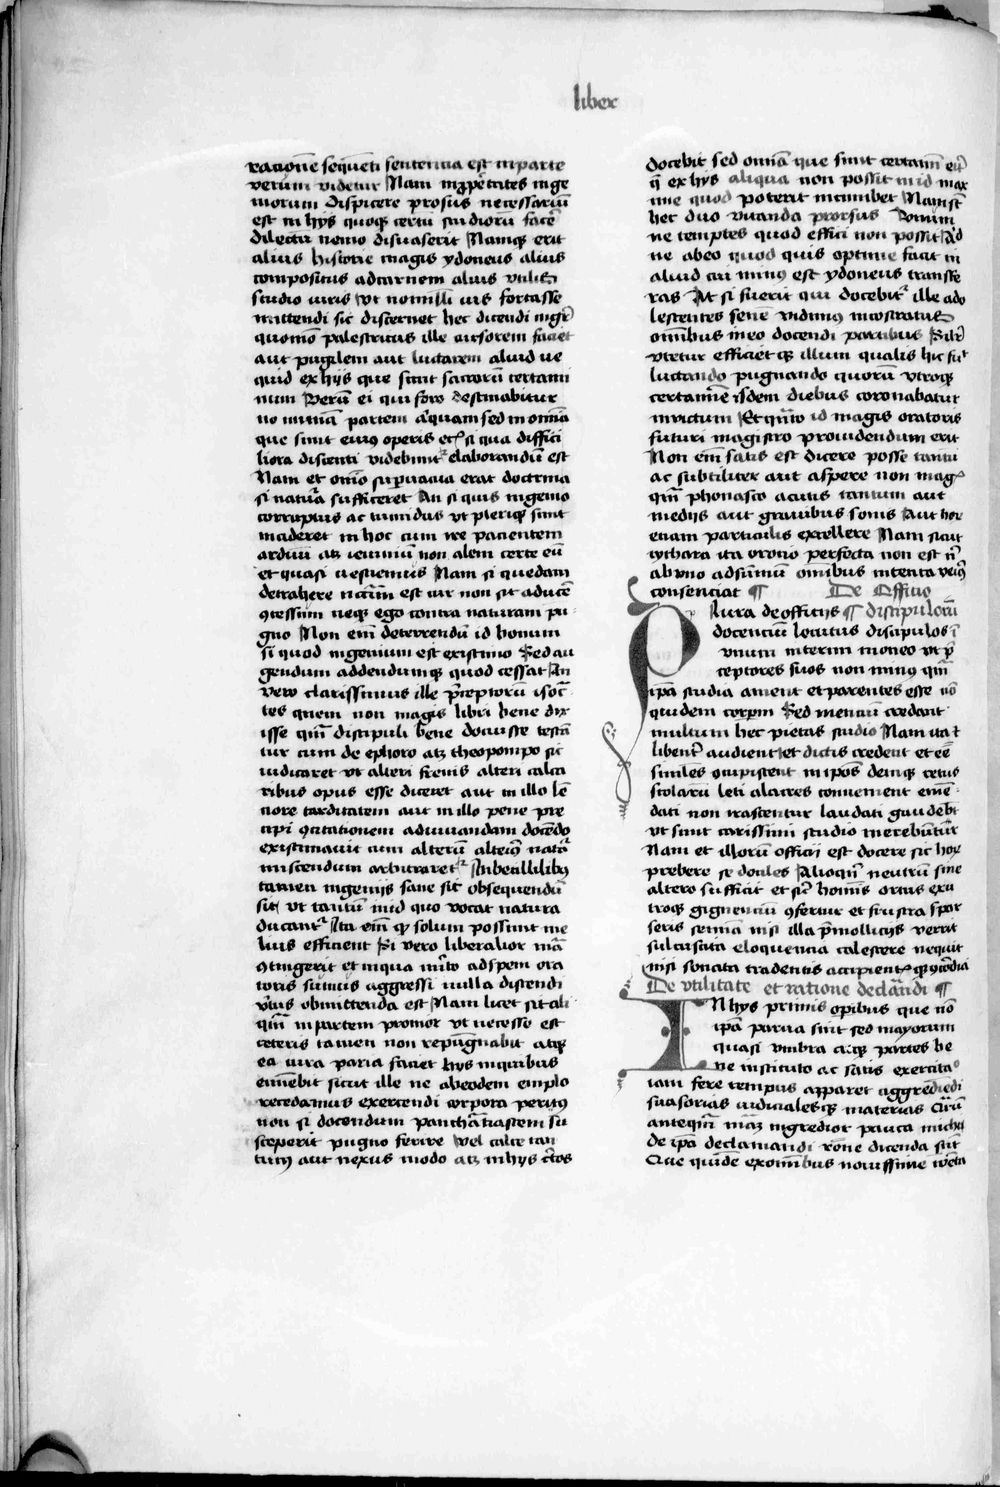 liber
ratiōne seqūeti sententia est in parte
verum videtur Nam in ꝓprietates inge
niorum dispicere prorsus necessariū
est in hijs quoqꝫ certū studiorū facē
dilectū nemo dissuaserit Namqꝫ erit
alius historie magis ydoneus alius
compositus ad carmen alius vtilis
studio iuris Vt nōnulli rus fortasse
mittendi sic discernet hec dicendi mgr̄
quomō palestricus ille cursorem faciet
aut pugilem aut luctatem aliud ve
quid ex hijs que sunt sacrorū certami
num Verū ei qui foro destinabitur
nō in vnā partem aliquam sed in omnīa
que sunt eius operis etsi si qua diffici
liora discenti videbunt᷑ elaborandū est
Nam et omīo suꝑuacua erat doctrina
si natura sufficeret An si quis ingenio
corruptus ac tumidus vt pleriqꝫ sunt
inciderit in hoc eum ire pacientem
aridū atqꝫ ieiuniū non alem certe eū
et quasi vestiemus Nam si quedam
detrahere nc̄cm̄ est cur non sit adicē
ꝯcessum neqꝫ ego contra naturam pu
gno Non em̄ deterrendū id bonum
si quod ingenium est existimo Sed au
gendum addendumqꝫ quod cessat An
vero clarissimus ille p̄ceptorū isoc᷑
tes quem non magis libri bene dix
isse qm̄ discipuli bene docuisse testā
tur cum de ephoro atqꝫ theopompo sic
iudicaret vt alteri frenis alteri calca
ribus opus esse diceret aut in illo lē
tiore tarditatem aut in illo pene pre
cipi ꝯcitationem adiuuandam docēdo
existimauit cum alterū alteriꝰ natā
miscendum arbitraret᷑ Imbecillibꝰ
tamen ingenijs sane sic obsequendū
sit vt tantū in id quo vocat natura
ducant᷑ Ita em̄ qꝫ solum possunt me
lius efficient Si vero liberalior mā
ꝯtingerit et in qua mīto ad spem ora
toris simus aggressi nulla discendi
v̄tus obmittenda est Nam licet sit ali
qm̄ in partem pronior vt necesse est
ceteris tamen non repūgnabit atqꝫ
ea cura paria faciet hys in quibus
eminebit sicut ille ne ab eodem emplo
recedamus exercendi corpora peritꝰ
non si docendum panchātiastem su
sceperit pugno ferire Vel calce tan
tum aut nexus modo atqꝫ in hys c̄tos
docebit sed omīa que sunt certamī eiꝰ
q̄ ex hys aliqua non possit in id max
ime quod poterit incumbet Nam sūt
hec duo vitanda prorsus Vnum
ne temptes quod effici non possit Ad
ne ab eo quod quis optime facit in
aliud cui minꝰ est ydoneus transfe
ras At si fuerit qui docebit᷑ ille ado
lescentes senē vidimꝰ nicostratus
omībus in eo docendi partibus
vtetur efficietqꝫ illum qualis hic fuit
luctando pugnando quorū vtroqꝫ
certamīe isdem diebus coronabatur
inuictum Et quāto id magis oratoris
futuri magistro prouidendum erit
Non em̄ satis est dicere posse tantū
ac subtiliter aut aspere non mag᷑
qm̄ phonasco acutis tantum aut
medijs aut grauibus sonis Aut hor
etiam particulis excellere Nam sicut
cythara ita oratio perfecta non est n̄
ab vno ad sūmū omībus intenta neruis
consenciat ¶ De Officio
Plura de officijs ¶ discipulorū
docenciū locutus discipulos ī
vnum interim moneo vt p̄
ceptores suos non minꝰ qm̄
ip̄a studia ament et parentes esse nō
quidem corpm̄ Sed menciū credant
multum hec pietas studio Nam ita ⁊
liben᷑ audient et dictis credent et eē
similes ꝯcupiscent in ip̄os deniqꝫ cetus
scolarū leti alacres conuenient emē
dati non irascentur laudati gaudebt
vt sint carissimi studio merebūtur
Nam et illorū officij est docere sic hor
prebere se dociles Alioqn̄ neutrū sine
altero sufficit et sic̄ hoīnis ortus ex v
troqꝫ gignenciū ꝯfertur et frustra spar
seris semīa nisi illa p̄mollitijs verrit
sulcus ita eloquencia calescere nequit
nisi sociata tradentis accipient᷑ qꝫ ꝯcōrdia
De vtilitate et ratione declādi ¶
IN hys primis opibus que nō
ip̄a parua sint sed mayorum
quasi vmbra atqꝫ partes be
ne instituto ac satis exercitato
iam fere tempus apparet aggrediēdi
suasorias iudicialesqꝫ materias Quarū
antequm̄ viam ingredior pauca michi
de ip̄a declamandi rōne dicenda sūt
Que quidē ex omībus nouissime inuēta